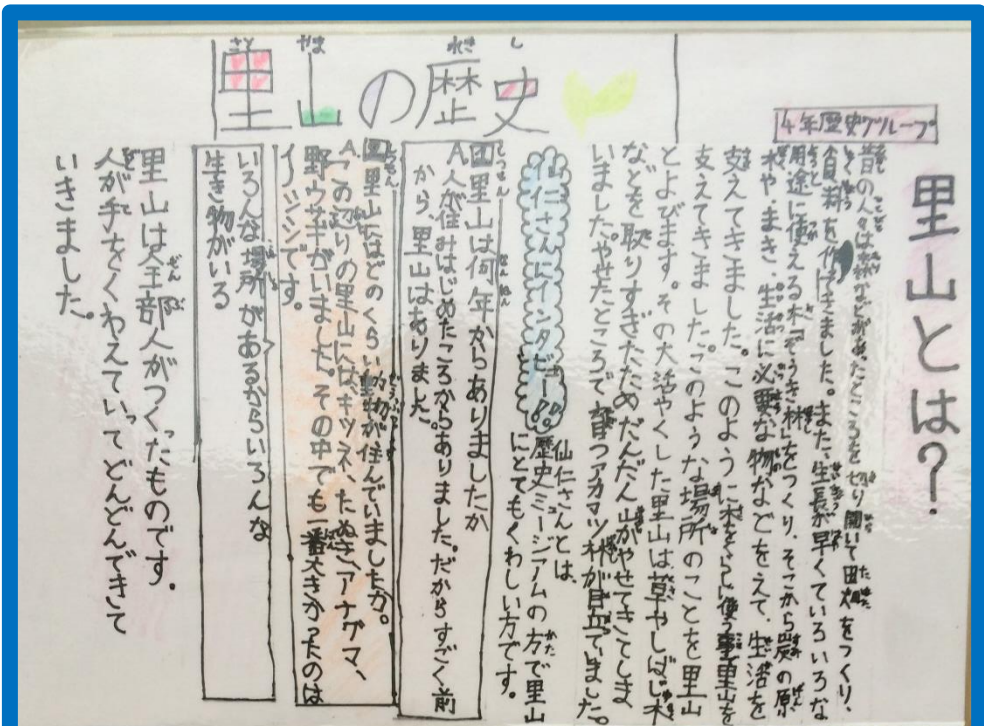 里山の歴史
4年歴史グループ
里山とは?
昔の人々は森などがあったところを切り開いて田畑をつくり、
食料を作ってきました。また、生長が早くていろいろな
用途に使える木「ぞうき林」をつくり、そこから炭の原
木や、まき、生活に必要な物などをえて、生活を
支えてきました。このように木をくらしに使う事里山を
支えてきました。このような場所のことを里山
とよびます。その大活やくした里山は草やしば木
などを取りすぎたためだんだん山がやせてきてしま
いました。やせたところで育つアカマツ林が目立てました。
仙仁さんにインタビュー!!
仙仁さんとは
歴史ミュージアムの方で里山
にとてもくわしい方です。
質問里山は何年からありましたか
A.人が住みはじめたころからありました。だからすごく前
から、里山はありました。
質問里山にはどのくらい動物が住んでいましたか。
A.この辺りの里山にはキツネ、たぬき、アナグマ、
野ウサギがいました。その中でも一番大きかったのは
イノシシです。
いろんな場所があるからいろんな
生き物がいる
里山は全部人がつくったものです。
人が手をくわえていってどんどんできて
いきました。